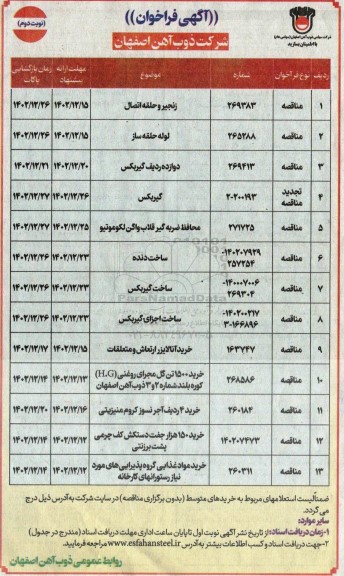 ((آگهی فراخوان))
(نوبت دوم)
شرکت ذوب آهن اصفهان
شرکت سهامی ذوب آهن اصفهان (سهامی عام)
با اطمینان بسازید
ردیف نوع فراخوان شماره موضوع مهلت ارائه پیشنهاد زمان بازگشایی پاکات
۱ مناقصه ۲۶۹۳۸۳ زنجیر و حلقه اتصال ۱۴۰۲/۱۲/۱۵ ۱۴۰۲/۱۲/۲۶
۲ مناقصه ۲۶۵۲۸۸ لوله حلقه ساز ۱۴۰۲/۱۲/۱۵ ۱۴۰۲/۱۲/۲۶
۳ مناقصه ۲۶۹۴۱۳ دوازده ردیف گیربکس ۱۴۰۲/۱۲/۲۰ ۱۴۰۲/۱۲/۲۱
۴ تجدید مناقصه ۲۰۲۰۰۱۹۳ گیربکس ۱۴۰۲/۱۲/۲۶ ۱۴۰۲/۱۲/۲۷
۵ مناقصه ۲۷۱۷۲۵ محافظ ضربه گیر قلاب واگن لکوموتیو ۱۴۰۲/۱۲/۲۵ ۱۴۰۲/۱۲/۲۷
۶ مناقصه ۱۴۰۲۰۷۹۲۹-۲۵۷۲۵۴ ساخت دنده ۱۴۰۲/۱۲/۲۳ ۱۴۰۲/۱۲/۲۶
۷ مناقصه ۱۴۰۰۰۷۰۰۶-۲۶۹۳۰۴ ساخت گیربکس ۱۴۰۲/۱۲/۲۳ ۱۴۰۲/۱۲/۲۶
۸ مناقصه ۱۴۰۲۰۰۲۱۷-۳۰۱۶۶۸۹۶ ساخت اجزای گیربکس ۱۴۰۲/۱۲/۲۳ ۱۴۰۲/۱۲/۲۶
۹ مناقصه ۱۶۳۷۴۷ خرید آنالایزر ارتعاش و متعلقات ۱۴۰۲/۱۲/۱۵ ۱۴۰۲/۱۲/۱۷
۱۰ مناقصه ۲۶۸۵۸۶ خرید ۱۵۰۰ تن گل مجرای روغنی (H.G) کوره بلند شماره ۲ و ۳ ذوب آهن اصفهان ۱۴۰۲/۱۲/۱۳ ۱۴۰۲/۱۲/۱۴
۱۱ مناقصه ۲۶۰۱۸۴ خرید ۴ ردیف آجر نسوز کروم منیزیتی ۱۴۰۲/۱۲/۱۶ ۱۴۰۲/۱۲/۲۰
۱۲ مناقصه ۱۴۰۲۰۷۴۷۳ خرید ۱۵۰ هزار جفت دستکش کف چرمی پشت برزنتی ۱۴۰۲/۱۲/۱۲ ۱۴۰۲/۱۲/۱۴
۱۳ مناقصه ۲۶۰۳۱۱ خرید مواد غذایی گروه پذیرایی های مورد نیاز رستورانهای کارخانه ۱۴۰۲/۱۲/۱۳ ۱۴۰۲/۱۲/۱۴
ضمناً لیست استعلامهای مربوط به خریدهای متوسط (بدون برگزاری مناقصه) در سایت شرکت به آدرس ذیل درج می گردد.
سایر موارد:
۱-زمان دریافت اسناد: از تاریخ نشر آگهی نوبت اول تا پایان ساعت اداری مهلت دریافت اسناد (مندرج در جدول)
۲-جهت دریافت اسناد و کسب اطلاعات بیشتر به آدرس www.esfahansteel.ir مراجعه فرمایید.
روابط عمومی ذوب آهن اصفهان
ParsNamadData